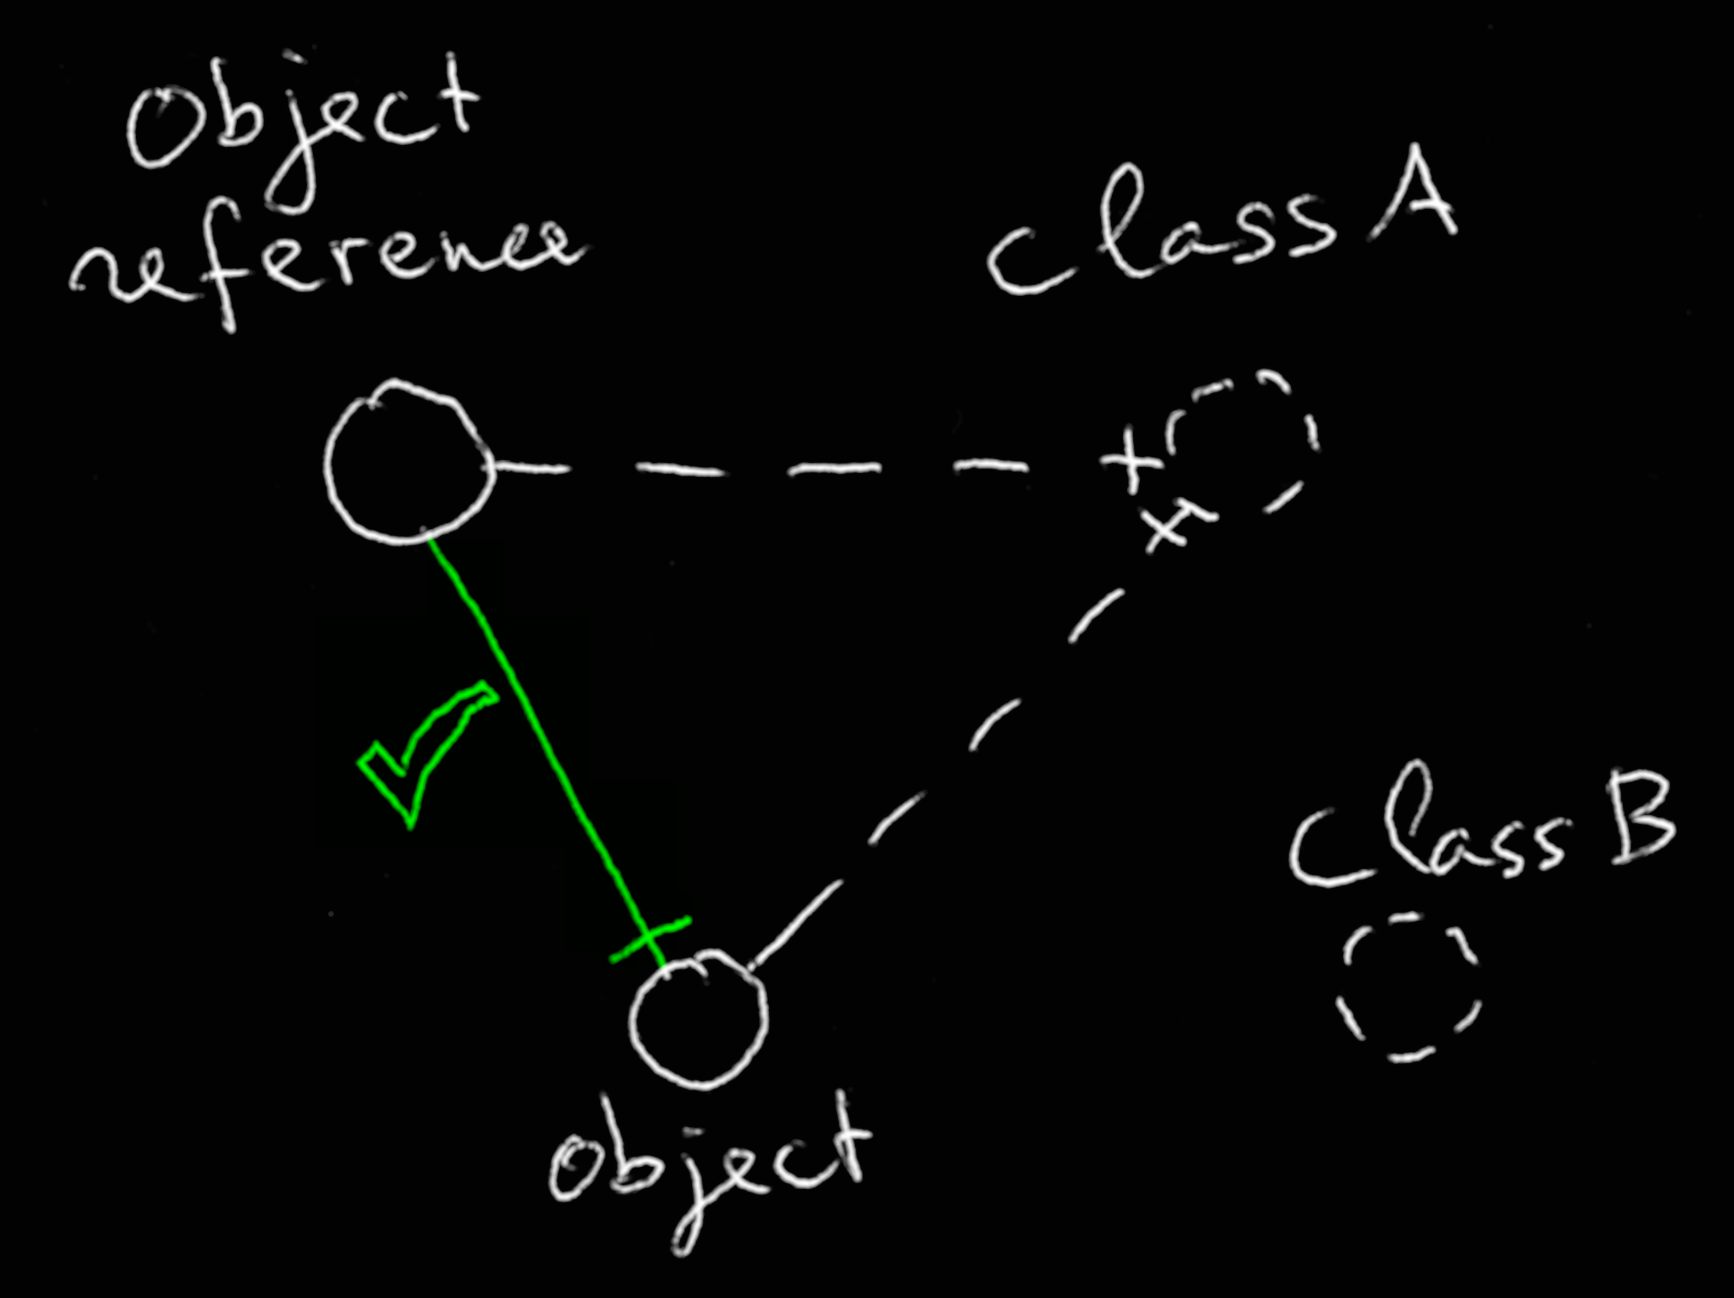 Object
reference
Class A
Class B
Object